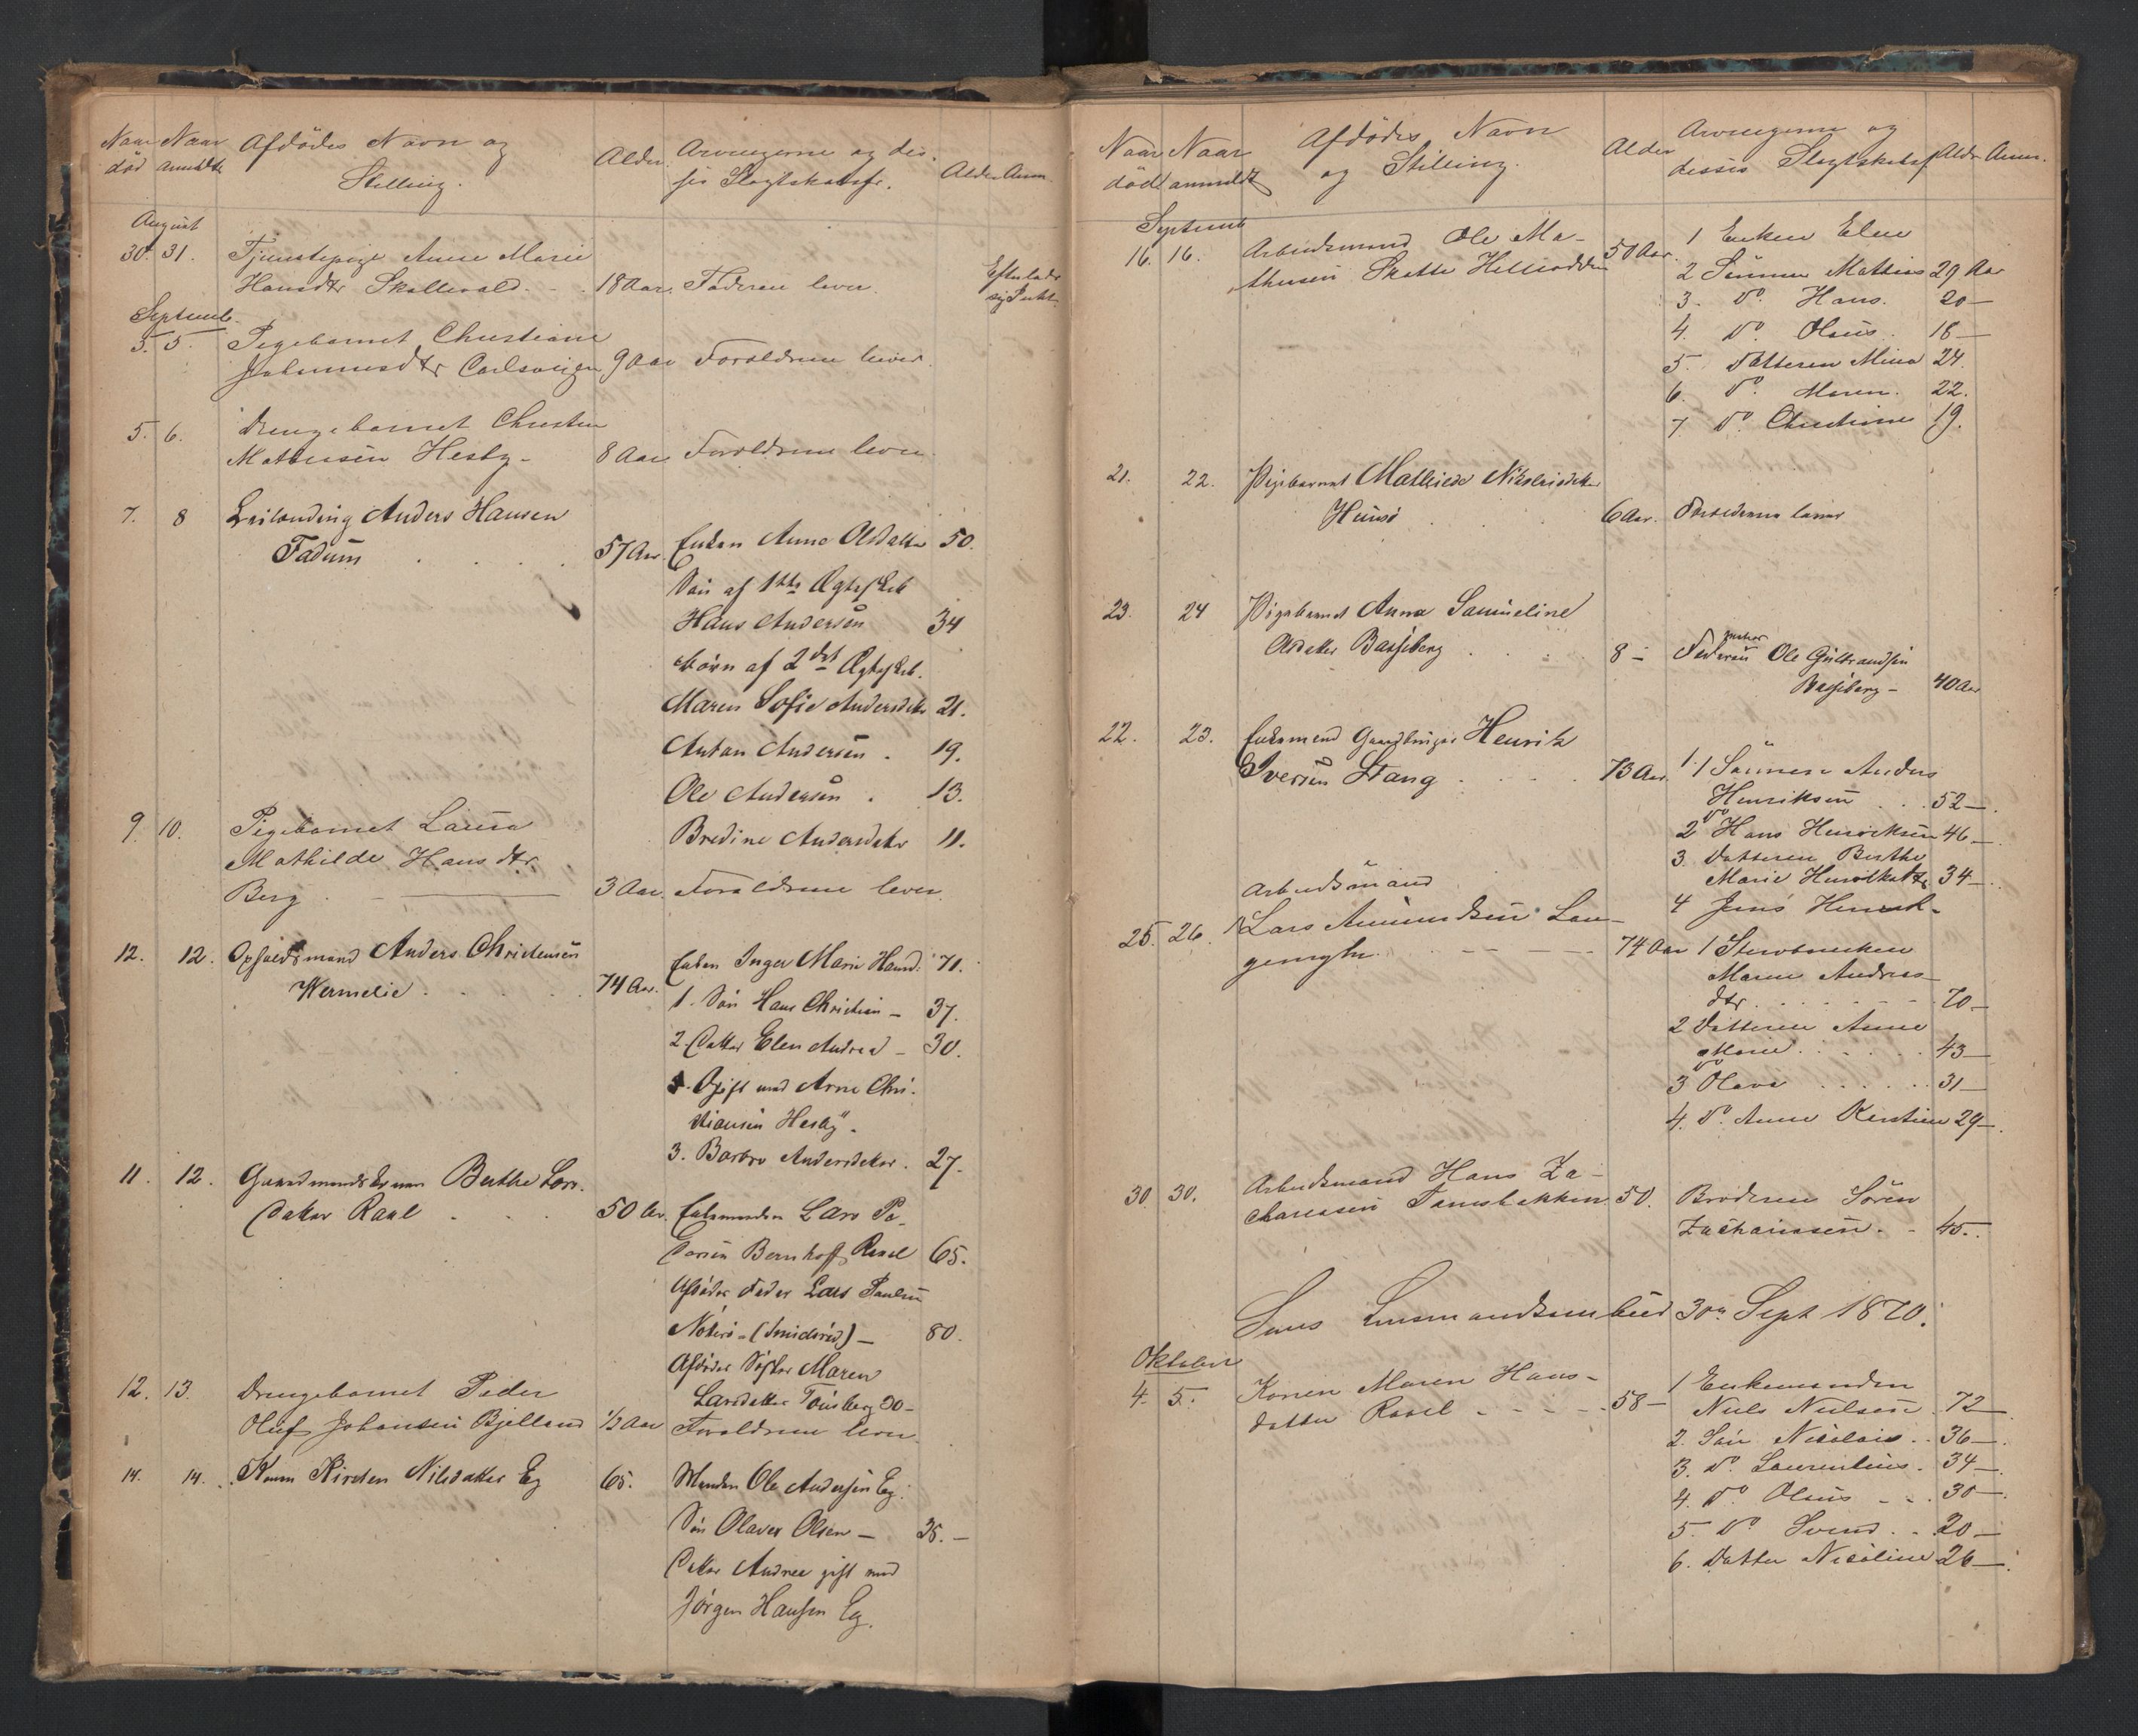 Naar Naar Afdødes Navn og Alder Arvingerne og des-
død anmeldt Stilling. ses Slægtskabsfr. Alder Anm.
August
30. 31. Tjenestepige Anne Marie
Hansdtr Skallevold 18 Aar. Faderen lever. Efterlader
sig Intet
Septemb.
5. 5. Pigebarnet Christiane
Johannesdtr Carlsvigen 9 Aar Forældrene lever.
5. 6. Drengebarnet Christen
Mathisen Hesby - 8 Aar Forældrene lever
7. 8 Leilending Anders Hansen
Fadum 57 Aar. Enken Anne Olsdatter 50.
Søn af 1ste Ægteskab
Hans Andersen 34
Børn af 2det Ægtesk.
Maren Sofie Andersdtr 21.
Anton Andersen . 19.
Ole Andersen . 13.
Bredine Andersdatr 11.
9. 10. Pigebarnet Laura
Mathilde Hansdtr
Berg 3 Aar. Forældrene lever.
12. 12. Opholdsmand Anders Christensen
Wermelie 74 Aar. Enken Inger Marie Hansd. 71.
1. Søn Hans Christian - 37.
2. Datter Elen Andrea - 30.
Gift med Arne Chri-
stiansen Hesby.
3. Barbro Andersdatter . 27.
11. 12. Gaardmandskonen Berthe Lars-
datter Rael 50 Ar. Enkemanden Lars Pe-
dersen Bernhoft Rael 65.
Afdødes Fader Lars Paulsen
Noterø - (Smiderød) - 80.
Afdødes Søster Maren
Larsdatter Tønsberg 50 -
12. 13. Drengebarnet Peder
Oluf Johansen Bjelland 1/2 Aar Forældrene lever.
14. 14. Konen Kirsten Nilsdatter Eg 65. Manden Ole Andersen Eg.
Søn Olaves Olsen - 35. -
Datter Andrea gift med
Jørgen Hansen Eg.
Naar Naar Afdødes Navn Alder Arvingerne og
død anmeldt og Stilling. disses Slægtskabsf Aldr Anm.
Septemb
16. 16. Arbeidsmand Ole Ma-
thisen Skatte 50 Aar. 1 Enken Elen
2 Sønnen Mathias 29 Aar
3. Do. Hans. 20 -
4. Do. Olaus. 16 -
5. Datteren Mina 24.
6. Do. Maren. 22.
7 Do. Christine 19.
21. 22. Pigebarnet Mathilde Nikolaisdatter
Husø 6 Aar. Forældrene lever
23. 24 Pigebarnet Anna Samueline
Olsdatter Basseberg 8 - Faderen Ole Gulbrandsen
Basseberg - 40 Aar
22. 23. Enkemand Gaardbruger Henrik
Iversen Stang 73 Aar. 1 Sønnen Anders
Henriksen 52 -
2 Do Hans Henriksen 46 -
3. Datteren Berthe
Marie Henriksdtr 34 -
4 Jens Henrik-
Arbeidsmand
25. 26. Lars Amundsen Lan-
gemyhr 74 Aar 1 Stervboenken
Maren Andreas-
dtr 70 -
2 Datteren Anne
Marie 43 -
3 Do Olava 31 -
4. Do. Anne Kirstine 29 -
30. 30. Arbeidsmand Hans Za-
chariasen Tamsbakken 50. Broderen Søren
Zachariassen 45.
Sems Lensmandsembed 30te Sept 1870.
Oktober
4. 5. Konen Maren Hans-
datter Rael 58 - 1 Enkemanden
Niels Nielsen 72
2. Søn Nicolai 36 -
3. Do. Laurentius. 34 -
4. Do. Olaus 30 -
5. Do. Svend 20 -
6. Datter Nicoline 26 -